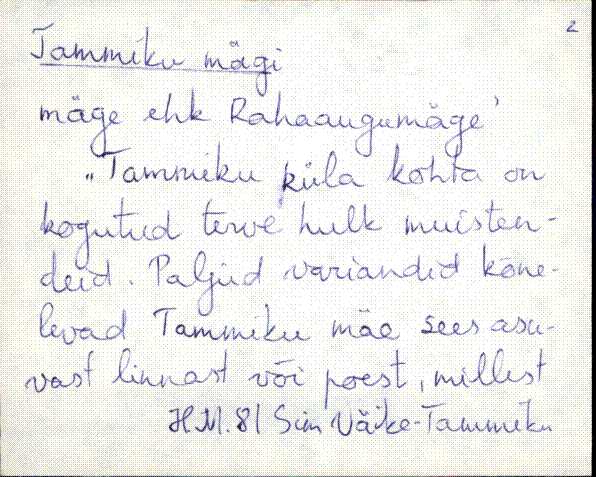 2
Tammiku mägi
mäge ehk Rahaaugumäge'
"Tammiku küla kohta on
kogutud terve hulk muisten-
deid. Paljud variandid kõne-
levad Tammiku mäe sees asu-
vast linnast või poest, millest
H.M. 81 Sim Väike-Tammiku